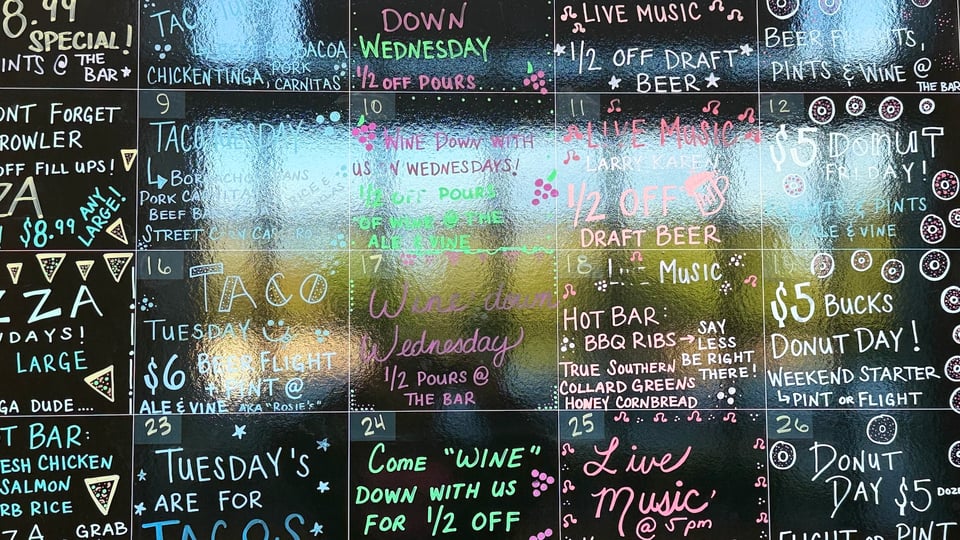 8.99
SPECIAL!
INTS @ THE
BAR*
TAC
BACOA
CHICKEN TINGA, PORK
CARNITAS
DOWN
WEDNESDAY
1/2 OFF POURS
LIVE MUSIC
1/2 OFF DRAFT
BEER
BEER F
PINTS & WINE @
THE BAR
ONT FORGET
ROWLER
OFF FILL UPS!
ZA
$8.99 ANY
LARGE!
9
TACO TUESDAY
PORK
BEEF
STREET
10
WINE DOWN WITH
US N WEDNESDAYS!
1/2 OFF POURS
OF WINE @ THE
ALE & VINE
11
LIVE MUSIC
LARRY KAREN
1/2 OFF
DRAFT BEER
12
$5 DONUT
FRIDAY!
PINTS
@ ALE & VINE
16
TACO
TUESDAY
$6 BEER FLIGHT
+ PINT @
ALE & VINE AKA "ROSIE'S"
17
Wine down
Wednesday
1/2 POURS @
THE BAR
18
MUSIC
HOT BAR:
BBQ RIBS → SAY
LESS
BE RIGHT
THERE!
TRUE SOUTHERN
COLLARD GREENS
HONEY CORNBREAD
$5 BUCKS
DONUT DAY!
WEEKEND STARTER
↳ PINT OR FLIGHT
ZZA
DAYS!
LARGE
GA DUDE....
T BAR:
ESH CHICKEN
SALMON
RB RICE
ZA GRAB
23
TUESDAY'S
ARE FOR
TACOS
24
COME "WINE"
DOWN WITH US
FOR 1/2 OFF
25
Live
music
@ 5pm
26
DONUT
DAY $5 DOZ
FLIGHT OR PINT